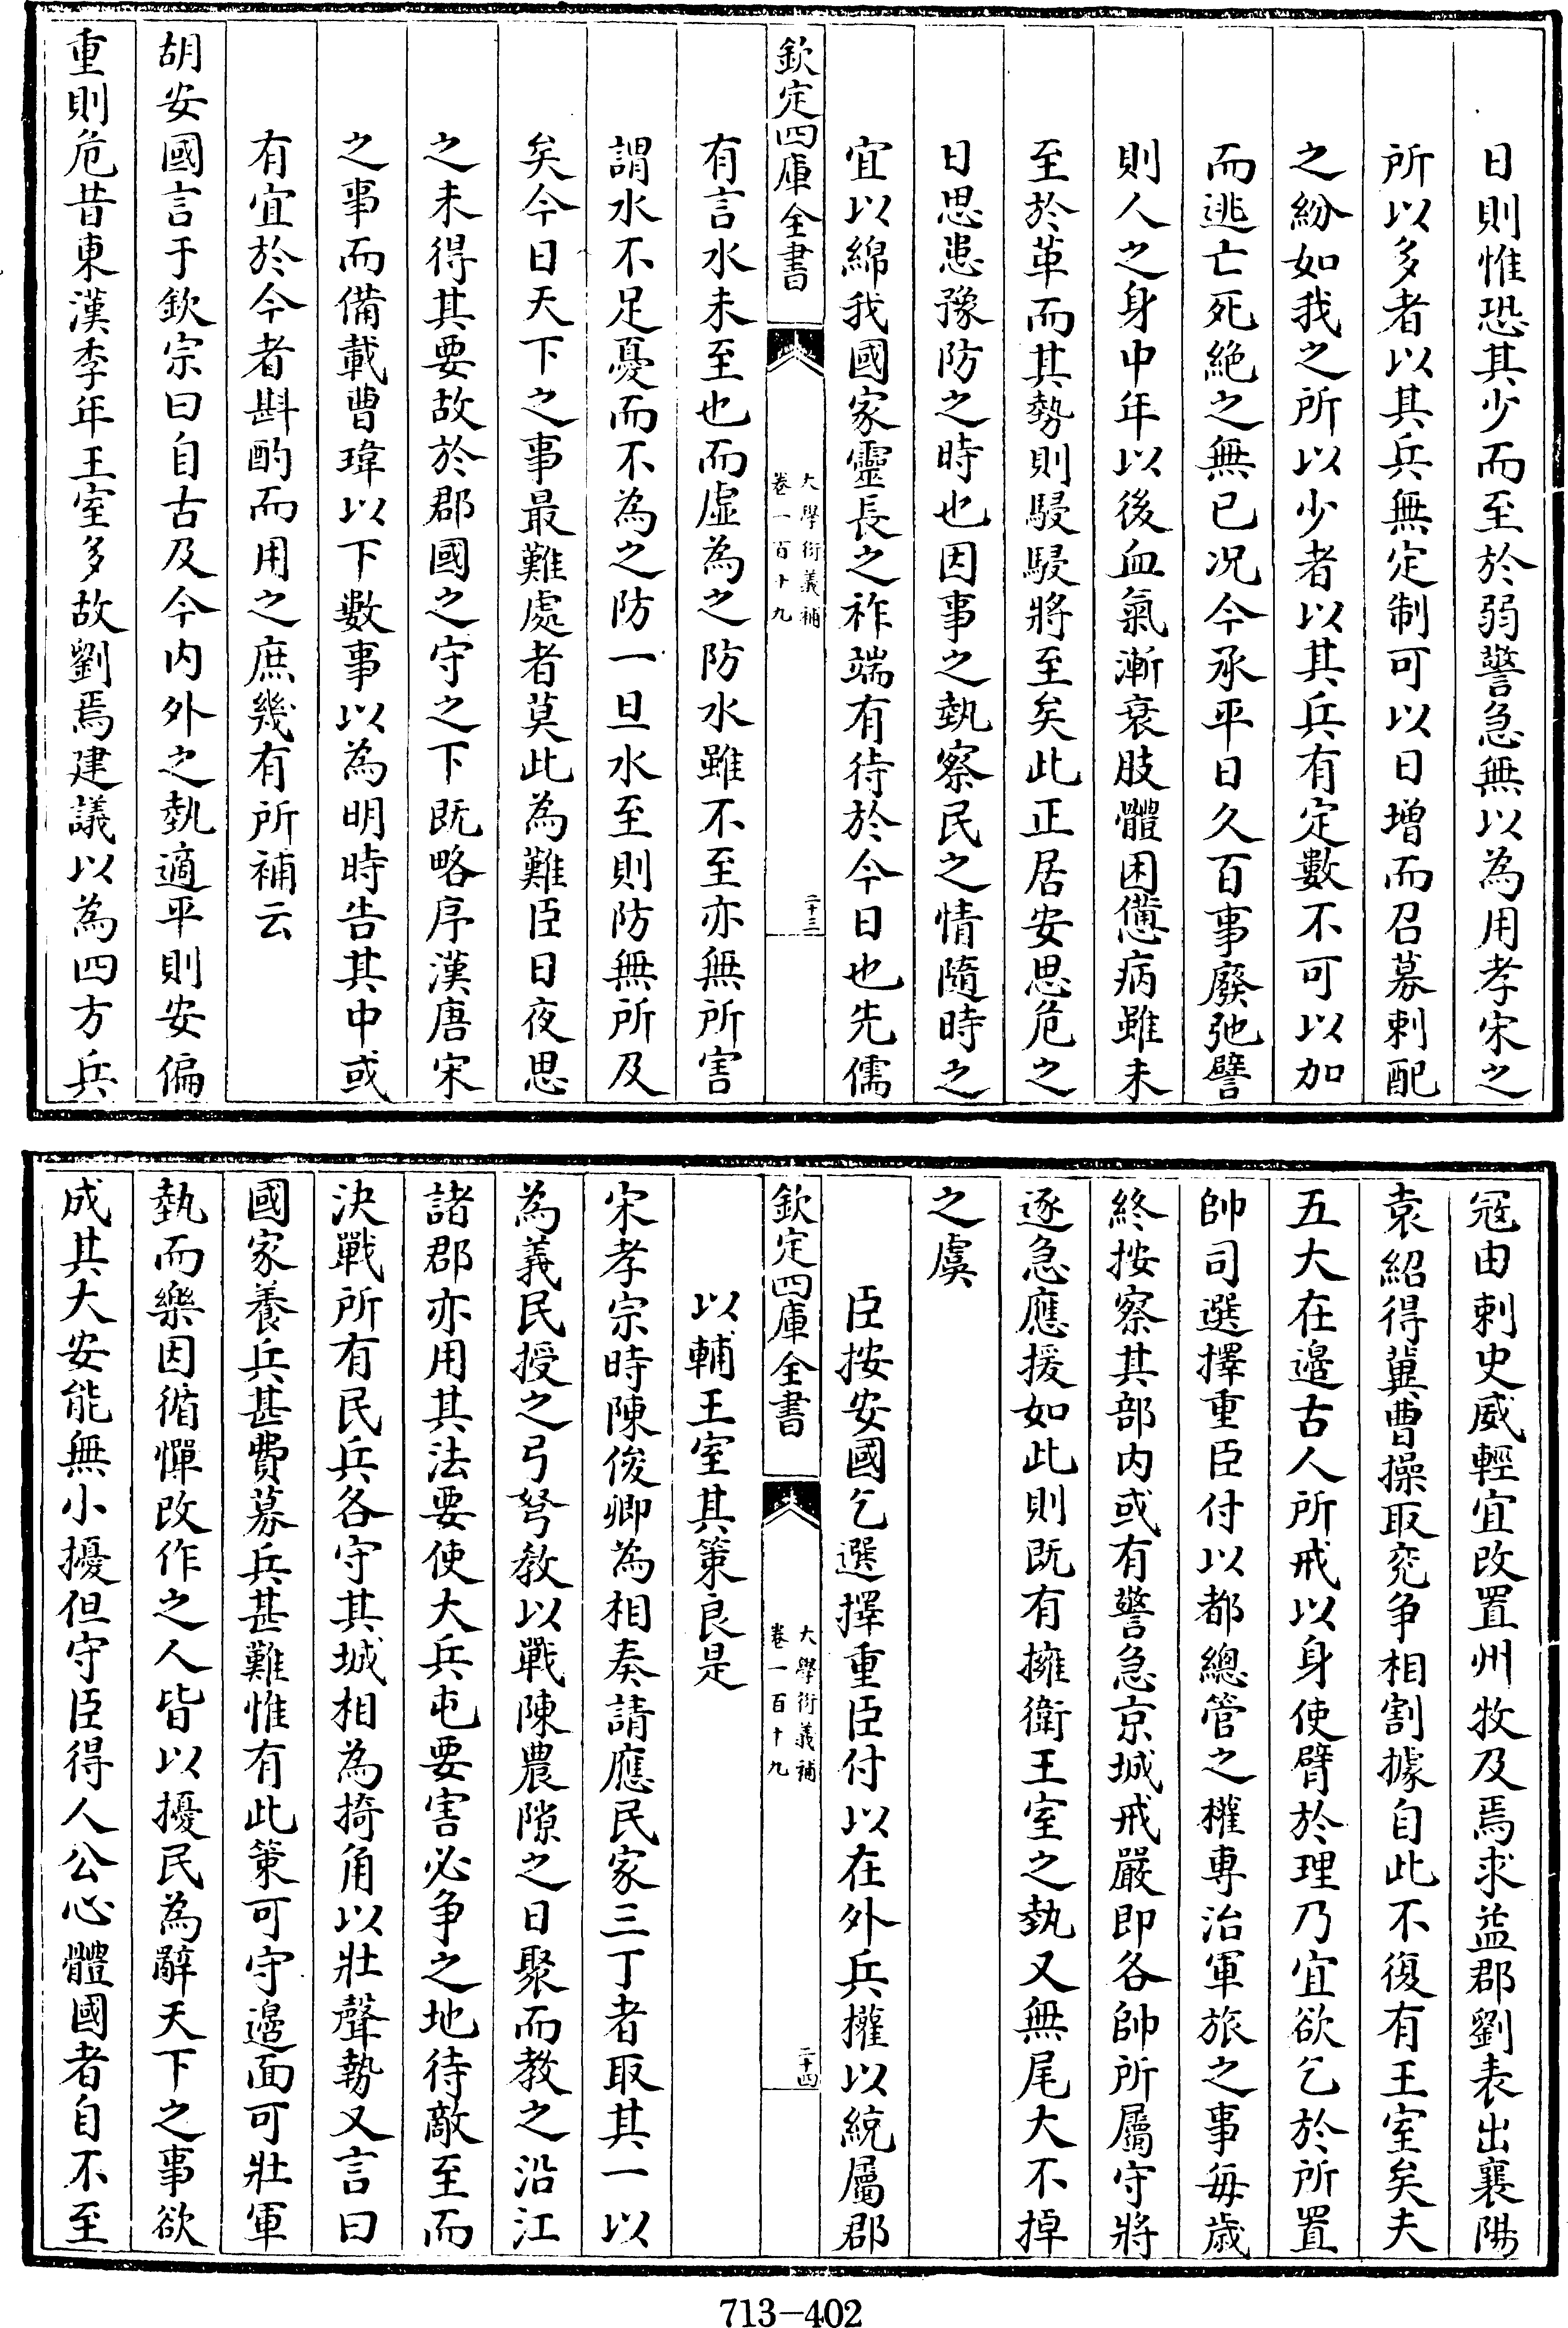 日則惟恐其少而至於弱警急無以為用孝宋之
所以多者以其兵無定制可以日增而召募刺配
之紛如我之所以少者以其兵有定數不可以加
而逃亡死絶之無已况今承平日久百事廢弛譬
則人之身中年以後血氣漸衰肢體困憊病雖未
至於革而其勢則駸駸將至矣此正居安思危之
日思患豫防之時也因事之埶察民之情隨時之
宜以綿我國家靈長之祚端有待於今日也先儒
欽定四庫全書
大學衍義補
卷一百十九
二十三
有言水未至也而虛為之防水雖不至亦無所害
謂水不足憂而不為之防一旦水至則防無所及
矣今日天下之事最難處者莫此為難臣日夜思
之未得其要故於郡國之守之下既略序漢唐宋
之事而備載曹瑋以下數事以為明時告其中或
有宜於今者斟酌而用之庶幾有所補云
胡安國言于欽宗曰自古及今内外之埶適平則安偏
重則危昔東漢季年王室多故劉焉建議以為四方兵
冦由刺史威輕宜改置州牧及焉求益郡劉表出襄陽
袁紹得冀曹操取兖争相割據自此不復有王室矣夫
五大在邉古人所戒以身使臂於理乃宜欲乞於所置
帥司選擇重臣付以都總管之權専治軍旅之事毎歳
終按察其部内或有警急京城戒嚴即各帥所屬守將
逐急應援如此則既有擁衛王室之埶又無尾大不掉
之虞
臣按安國乞選擇重臣付以在外兵權以統屬郡
欽定四庫全書
大學衍義補
卷一百十九
二十四
以輔王室其策良是
宋孝宗時陳俊卿為相奏請應民家三丁者取其一以
為義民授之弓弩教以戰陳農隙之日聚而教之沿江
諸郡亦用其法要使大兵屯要害必争之地待敵至而
決戰所有民兵各守其城相為掎角以壯聲勢又言曰
國家養兵甚費募兵甚難惟有此策可守邉面可壯軍
埶而樂因循憚改作之人皆以擾民為辭天下之事欲
成其大安能無小擾但守臣得人公心體國者自不至
713-402